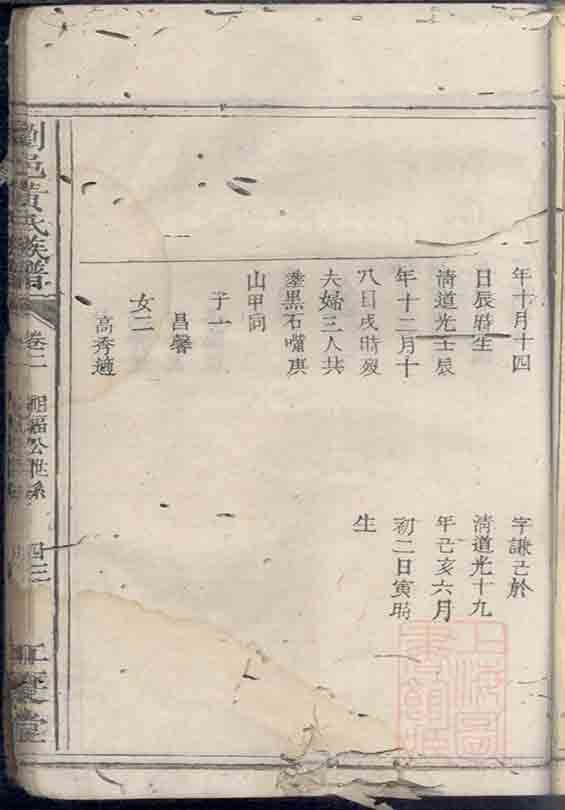 年十月十四
日辰時生
清道光壬辰
年十二月十
八日戌時歿
夫婦三人共
塟黒石嘴庚
山甲向
子一
昌馨
女二
高秀適
字謙己於
清道光十九
年己亥六月
初二日寅時
生
劉邑黃氏族譜
卷二
朝福公世系
四三
江夏堂
上海圖書館藏